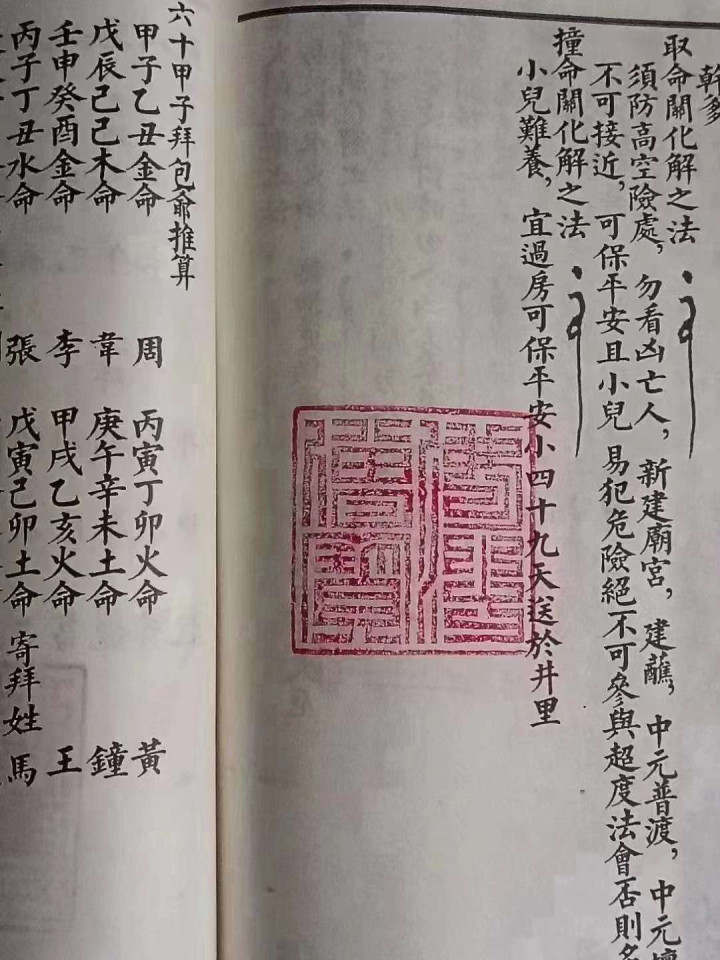 取命關化解之法
須防高空險處，勿看凶亡人，新建廟宮，建蘸，中元普渡，中元
不可接近，可保平安且小兒易犯危險絕不可參與超度法會否則多
撞命關化解之法
小兒難養，宜過房可保平安小四十九天送於井里
六十甲子拜包爺推算
甲子乙丑金命 周 丙寅丁卯火命 黃
戊辰己己木命 韋 庚午辛未土命 鐘
壬申癸酉金命 李 甲戌乙亥火命 王
丙子丁丑水命 張 戊寅己卯土命 寄拜姓 馬